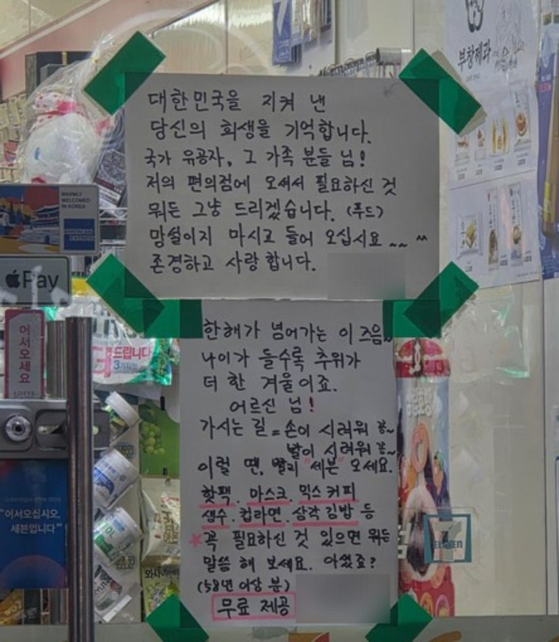 대한민국을 지켜 낸
당신의 희생을 기억합니다.
국가 유공자, 그 가족 분들 님!
저의 편의점에 오셔서 필요하신 것
뭐든 그냥 드리겠습니다. (푸드)
망설이지 마시고 들어 오십시요 ~~ ^^
존경하고 사랑합니다.
한해가 넘어가는 이즈음~
나이가 들수록 추위가
더 한 겨울이죠.
어르신 님!
가시는 길 = 손이 시려워 꽁~
발이 시려워 꽁~
이럴 땐, 빨리 "세븐" 오세요.
핫팩. 마스크. 믹스 커피
생수. 컵라면. 삼각 김밥 등
꼭 필요하신 것 있으면 뭐든
말씀 해 보세요. 아셨죠?
(58년 이상 분)
무료 제공
부창제과
WARMLY
WELCOMED
IN KOREA
Pay
어서오세요
드립니다
"어서오십시오,
세븐입니다"